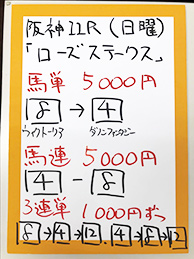 阪神11R(日曜)
「ローズステークス」
馬単 5000円
8 → 4
ヴィクトーリア ダノンファンタジー
馬連 5000円
4 - 8
3連単 1000円ずつ
8→4→12, 4→8→12